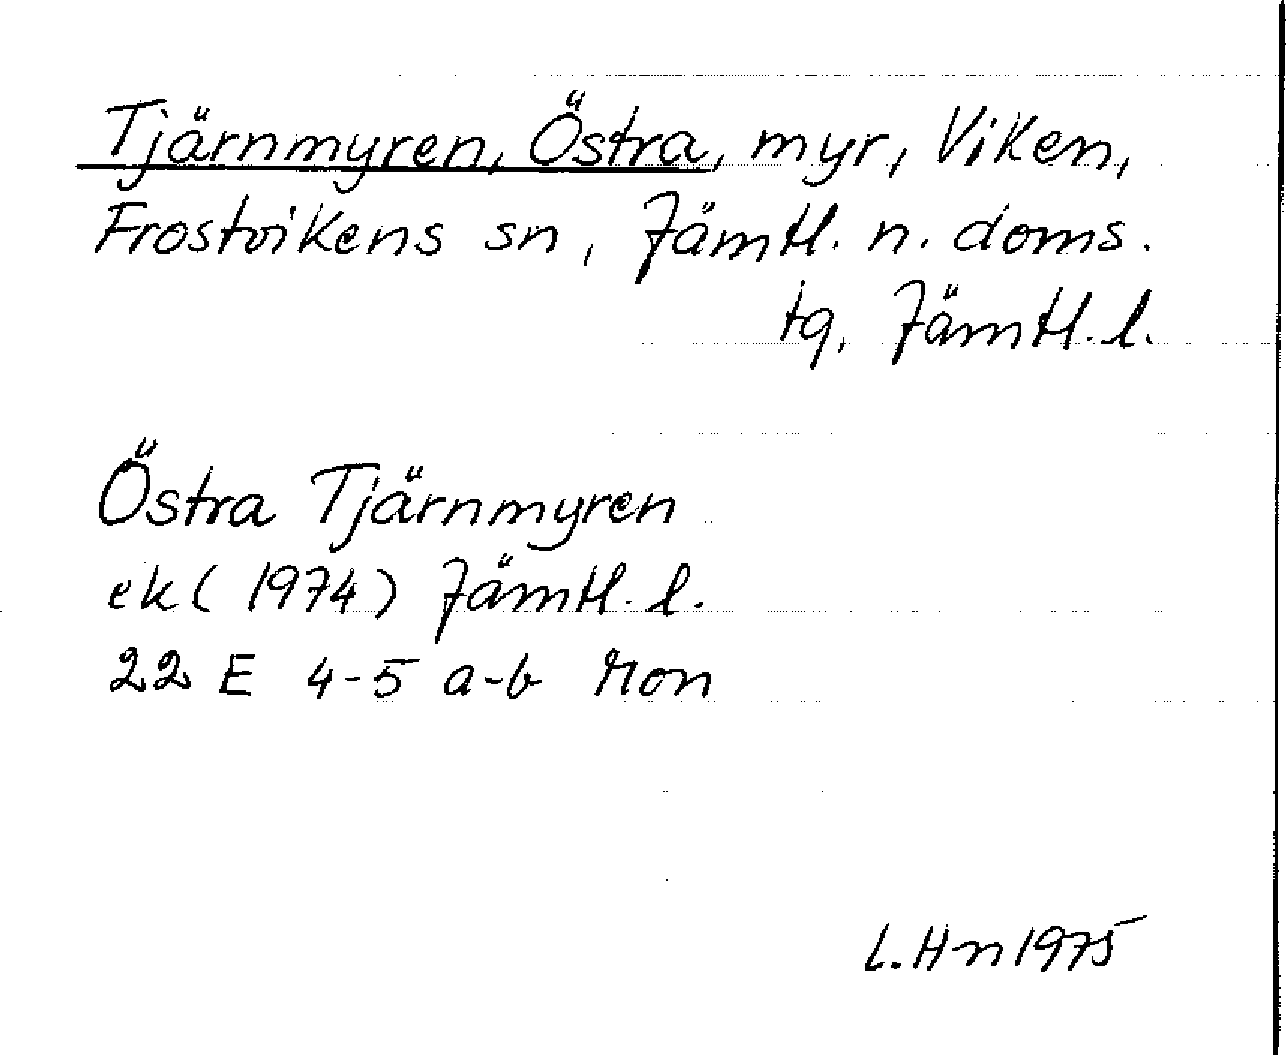 Tjärnmyren, Östra, myr, Viken,
Frostvikens sn, Jämtl. n. doms.
tg, Jämtl. l.
Östra Tjärnmyren
ek (1974) Jämtl. l.
22 E 4-5 a-b Mon
L. Hn 1975